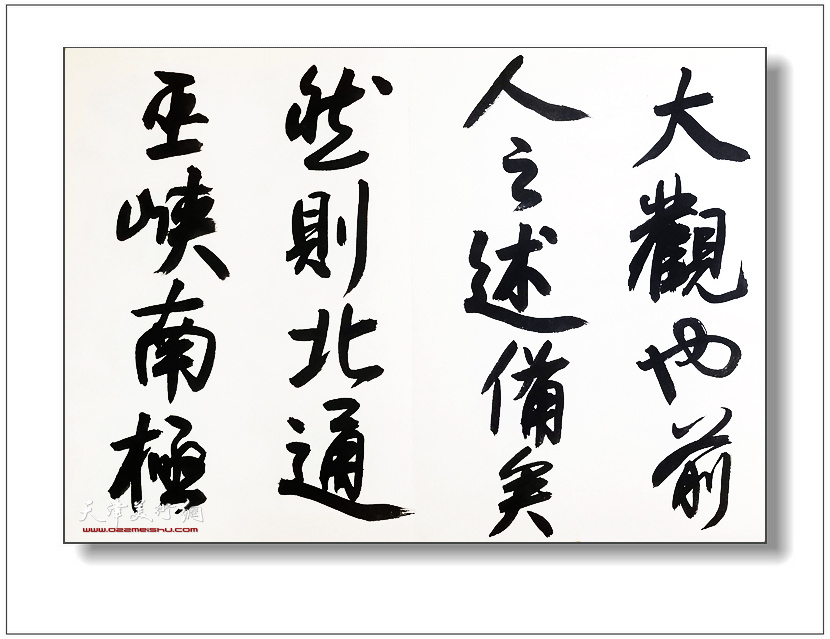 大觀也前
人之述備矣
然則北通
巫峽南極
天津美術網
www.022meishu.com